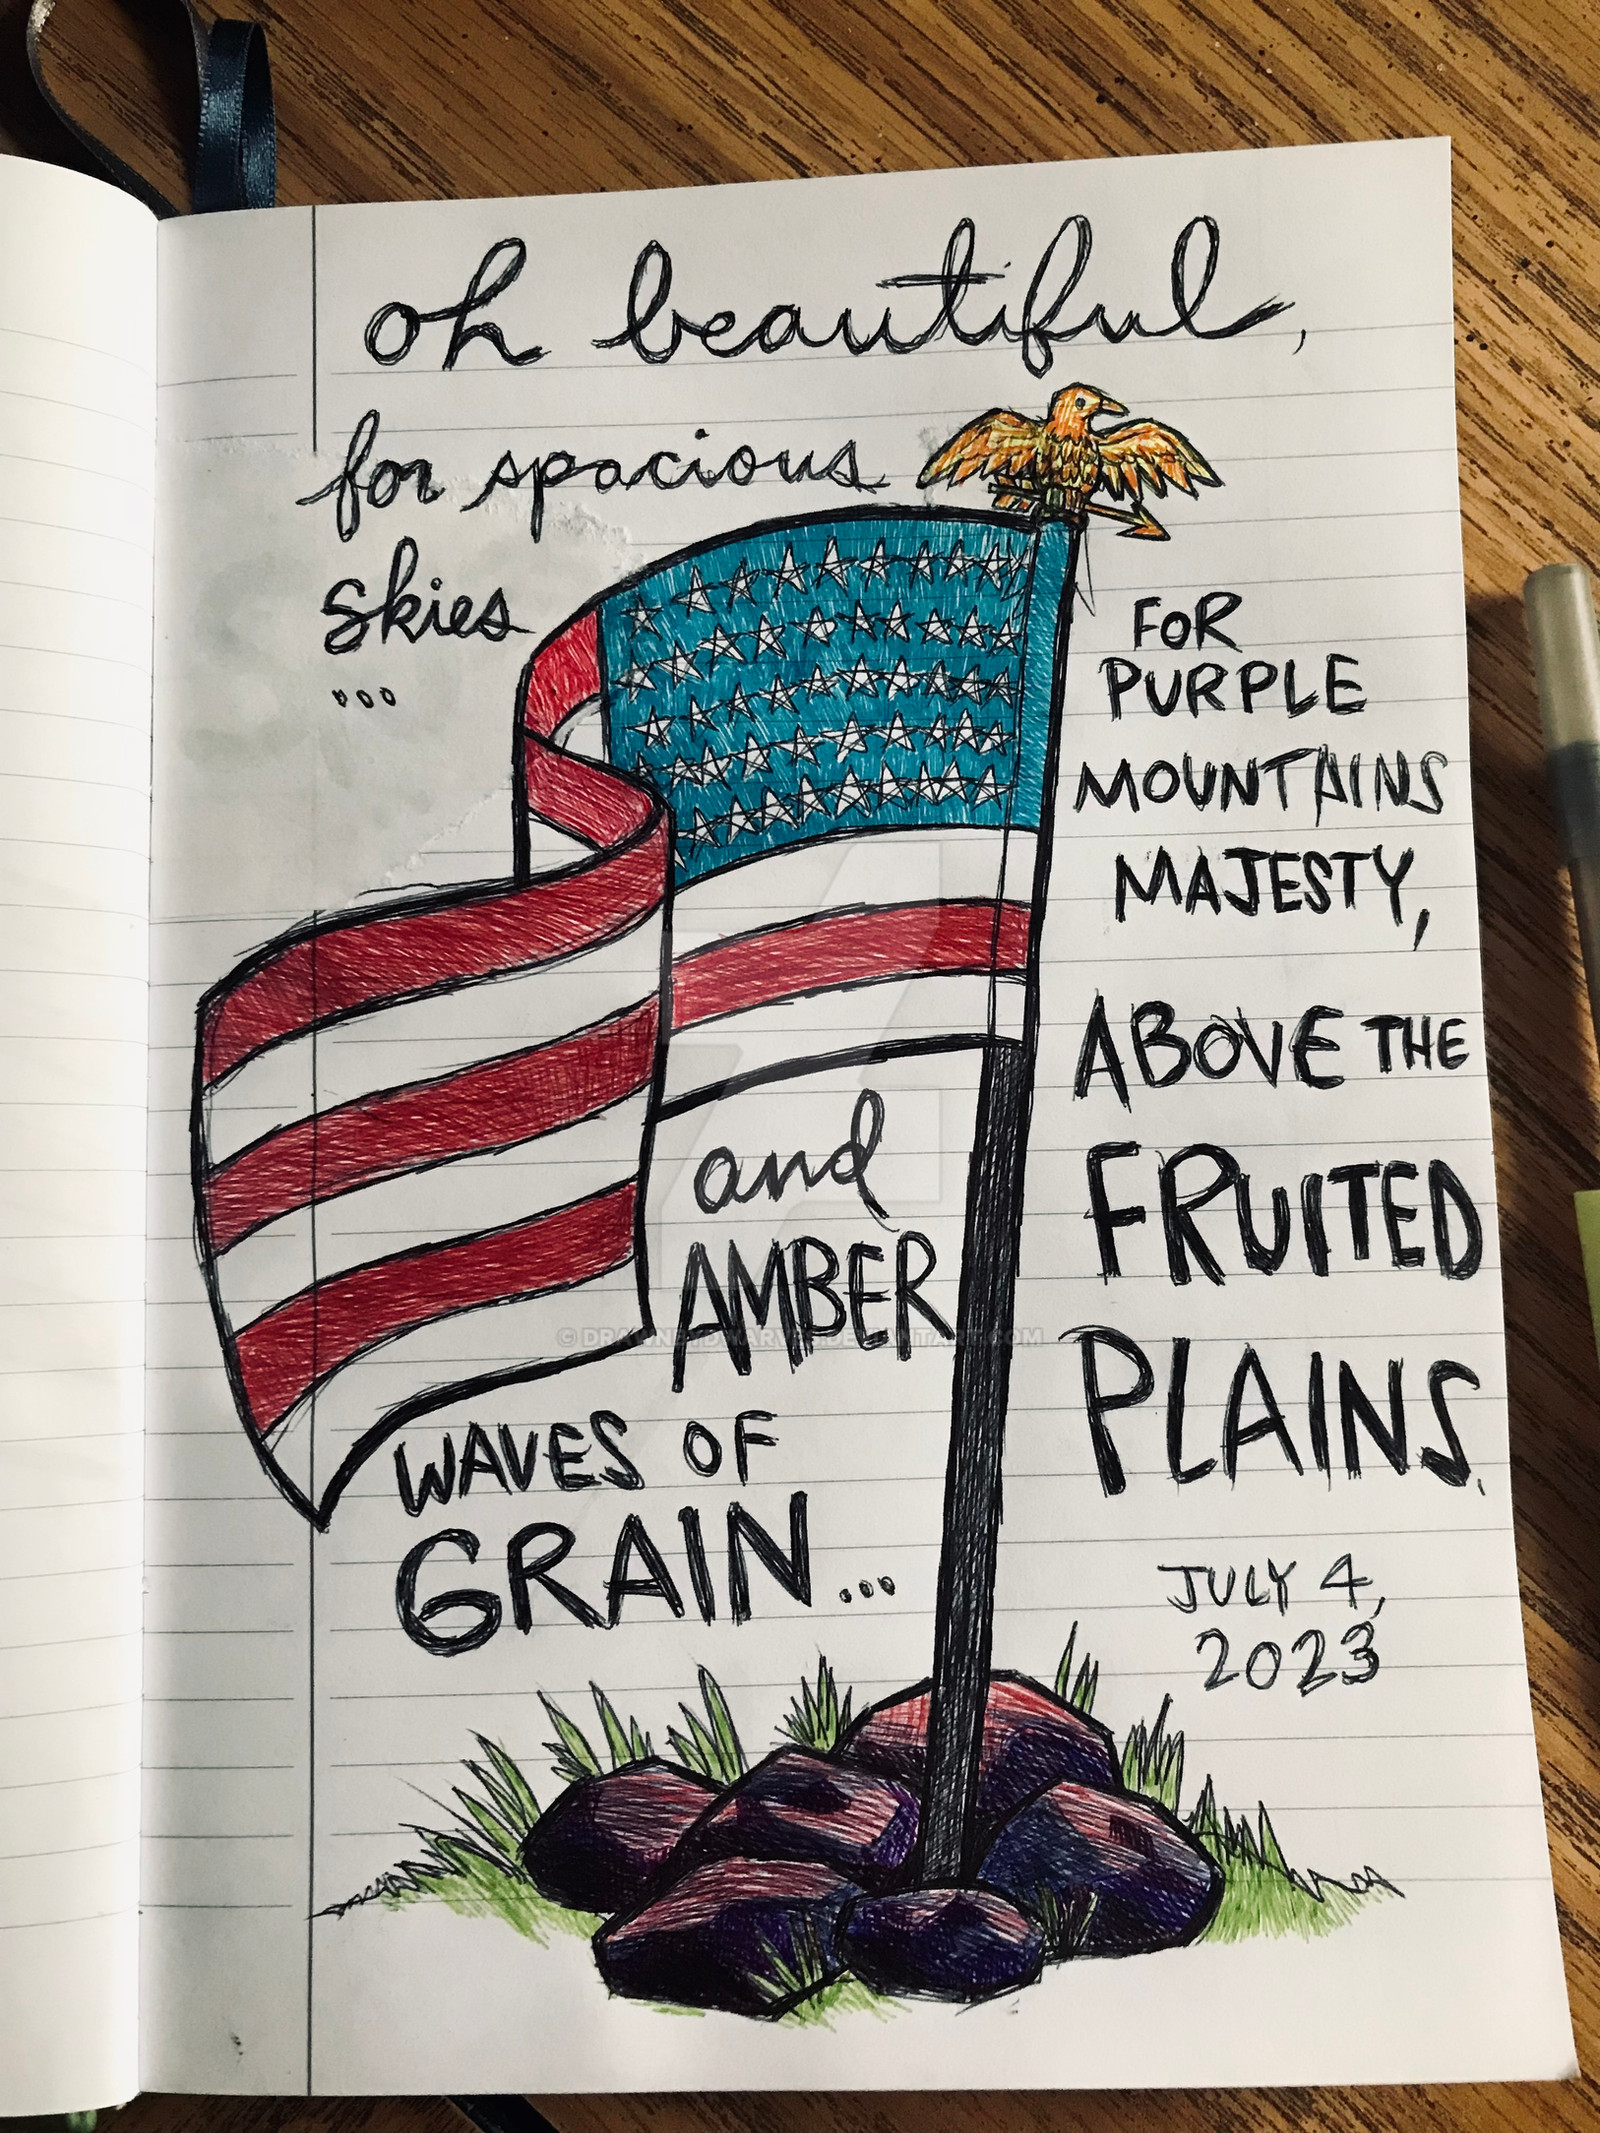 oh beautiful,
for spacious
skies
...
and
AMBER
WAVES OF
GRAIN...
FOR
PURPLE
MOUNTAINS
MAJESTY,
ABOVE THE
FRUITED
PLAINS.
JULY 4,
2023